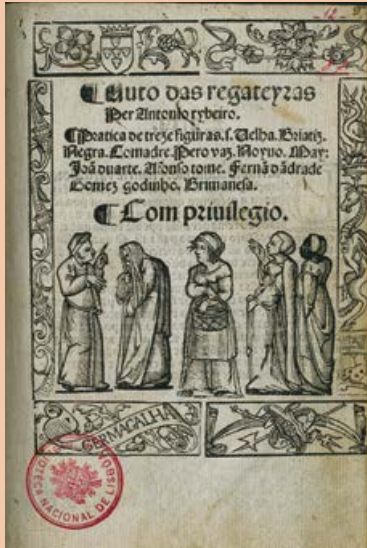 12
¶Auto das regateyras
Per Antonio rybeiro.
¶Pratica de treze figuras. s. Velha. Briatiz.
Negra. Comadre. Pero vaz. Noyuo. May:
Joã duarte. Afonso tome. Fernã dãdrade
Gomez godinho. Brimanesa.
¶Com priuilegio.
GERMAGALHA
NACIONAL DE LISBOA